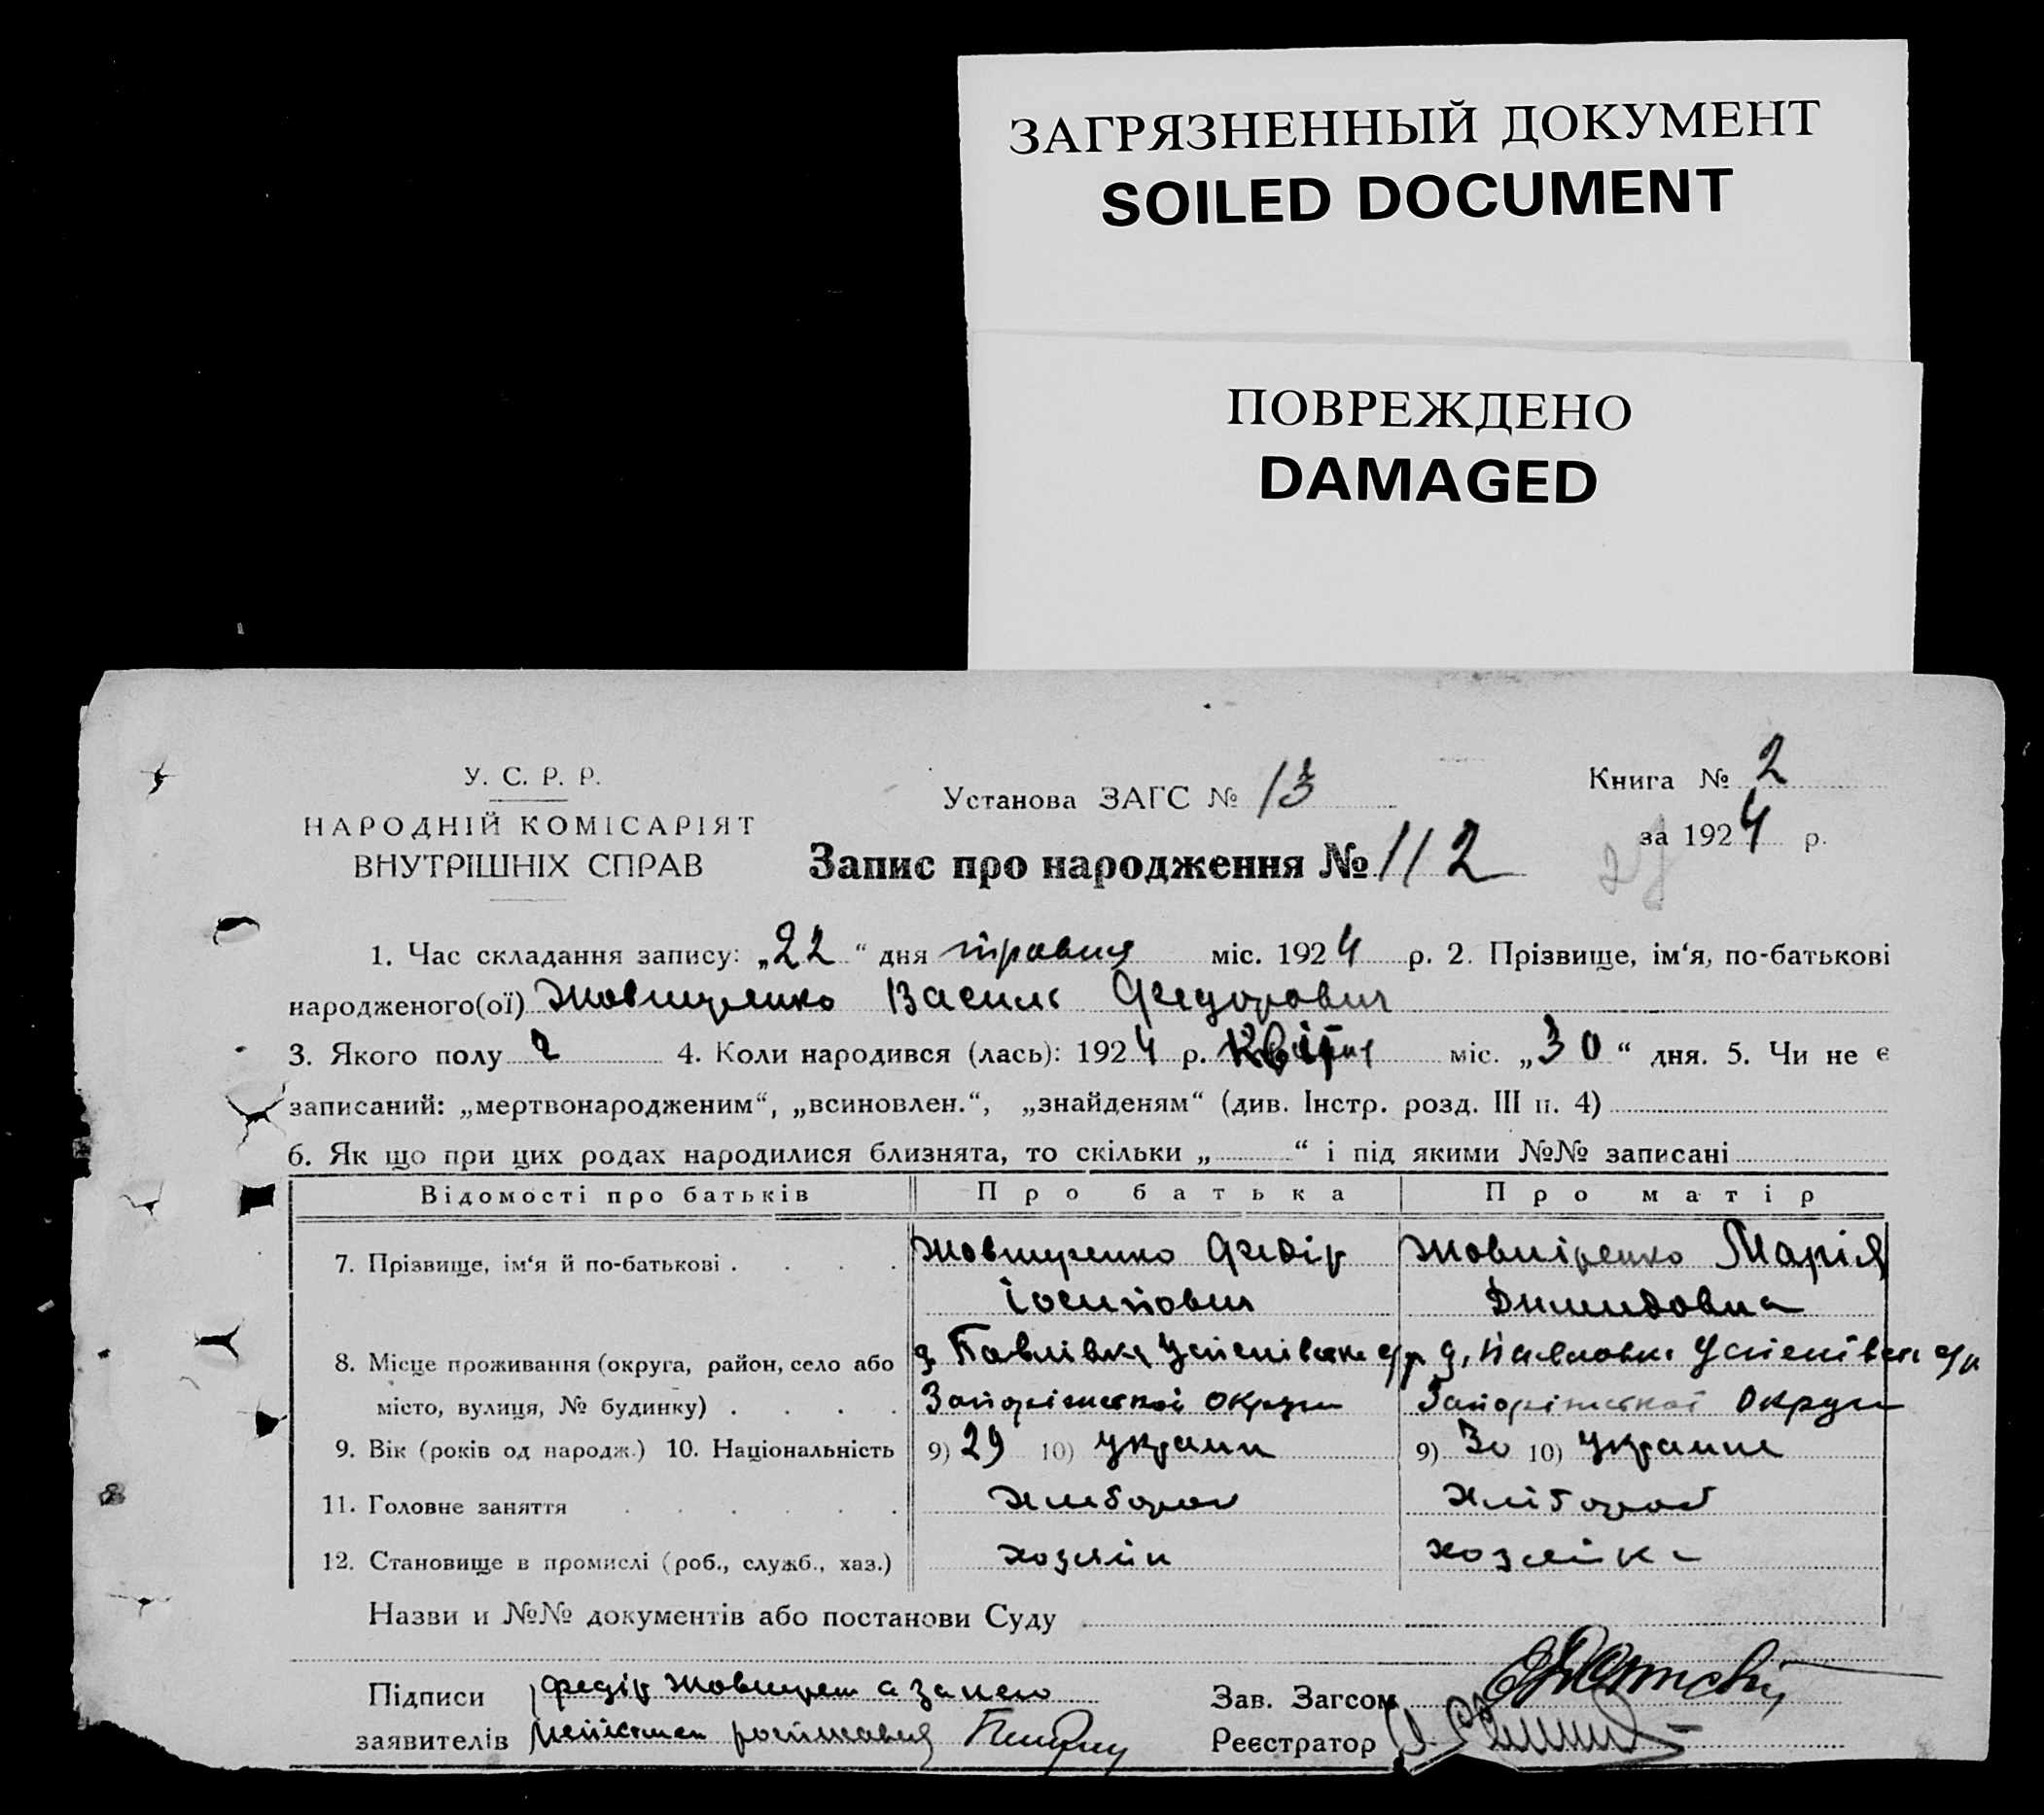 ЗАГРЯЗНЕННЫЙ ДОКУМЕНТ
SOILED DOCUMENT
ПОВРЕЖДЕНО
DAMAGED
У. С. Р. Р.
НАРОДНІЙ КОМІСАРІЯТ
ВНУТРІШНІХ СПРАВ
Установа ЗАГС № 13
Книга № 2
за 1924 р.
Запис про народження № 112
1. Час складання запису: „22“ дня травня міс. 1924 р. 2. Прізвище, ім‘я, по-батькові
народженого(ої) Василь Федорович
3. Якого полу 4. Коли народився (лась): 1924 р. Квітня міс. „30“ дня. 5. Чи не є
записаний: „мертвонародженим“, „всиновлен.“, „знайденям“ (див. Інстр. розд. III п. 4)
6. Як що при цих родах народилися близнята, то скільки „ “ і під якими №№ записані
Відомості про батьків Про батька Про матір
7. Прізвище, ім‘я й по-батькові . . . . Федір Марія
Іосипович
8. Місце проживання (округа, район, село або д. Павлівка с/р д. Павловка
місто, вулиця, № будинку) . . . . Запоріжської Округи Запоріжської Округи
9. Вік (років од народж.) 10. Національність 9) 29 10) україн 9) 30 10) українк
11. Головне заняття . . . . . . хлібороб хлібороб
12. Становище в промислі (роб., служб., хаз.) хозяїн хозяйка
Назви и №№ документів або постанови Суду
Підписи Федір а за нею Зав. Загсом
заявителів Реєстратор